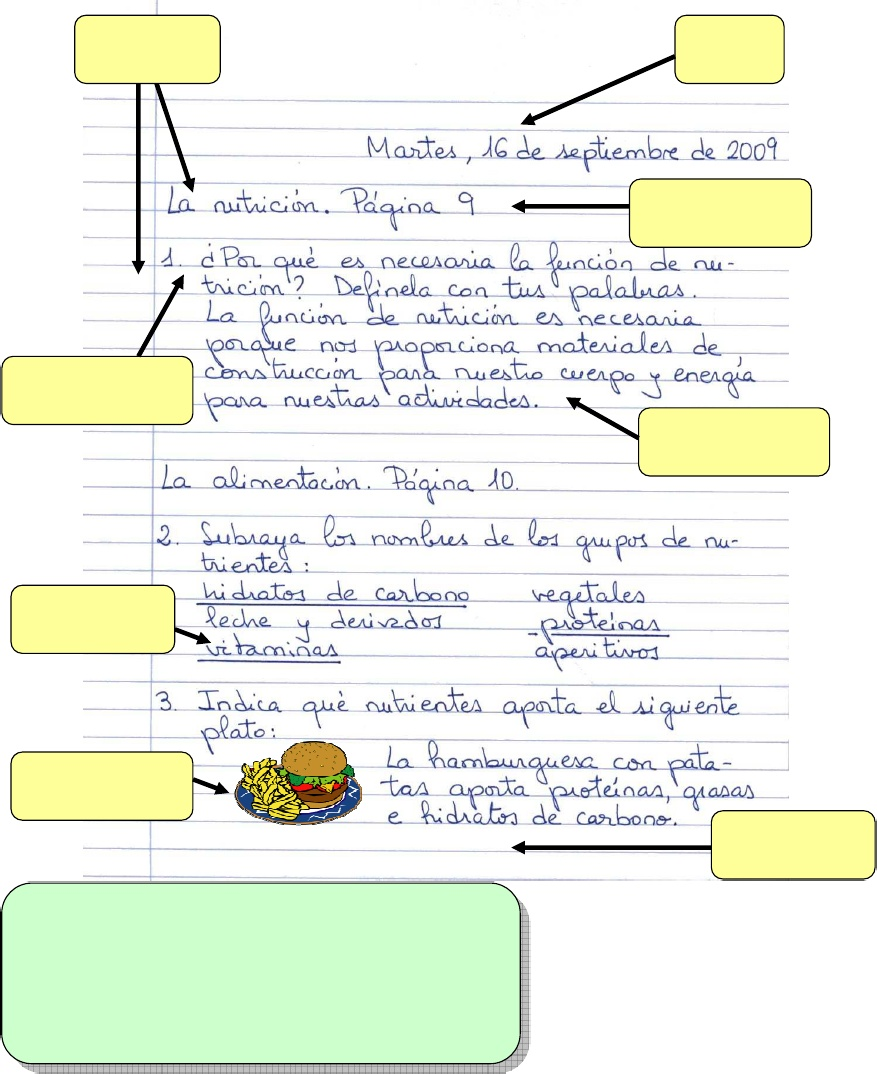 Martes, 16 de septiembre de 2009
La nutrición. Página 9
1. ¿Por qué es necesaria la función de nu-
trición? Defínela con tus palabras.
La función de nutrición es necesaria
porque nos proporciona materiales de
construcción para nuestro cuerpo y energía
para nuestras actividades.
La alimentación. Página 10.
2. Subraya los nombres de los grupos de nu-
trientes:
hidratos de carbono vegetales
leche y derivados proteínas
vitaminas aperitivos
3. Indica qué nutrientes aporta el siguiente
plato:
La hamburguesa con pata-
tas aporta proteínas, grasas
e hidratos de carbono.